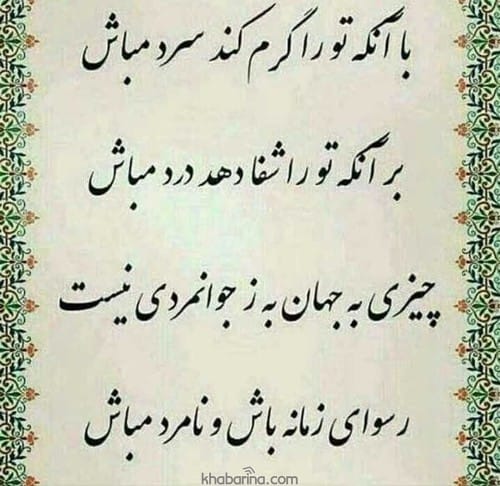 با آنکه تو را گرم کند سرد مباش
بر آنکه تو را شفا دهد درد مباش
چیزی به جهان به ز جوانمردی نیست
رسوای زمانه باش و نامرد مباش
khabarina.com